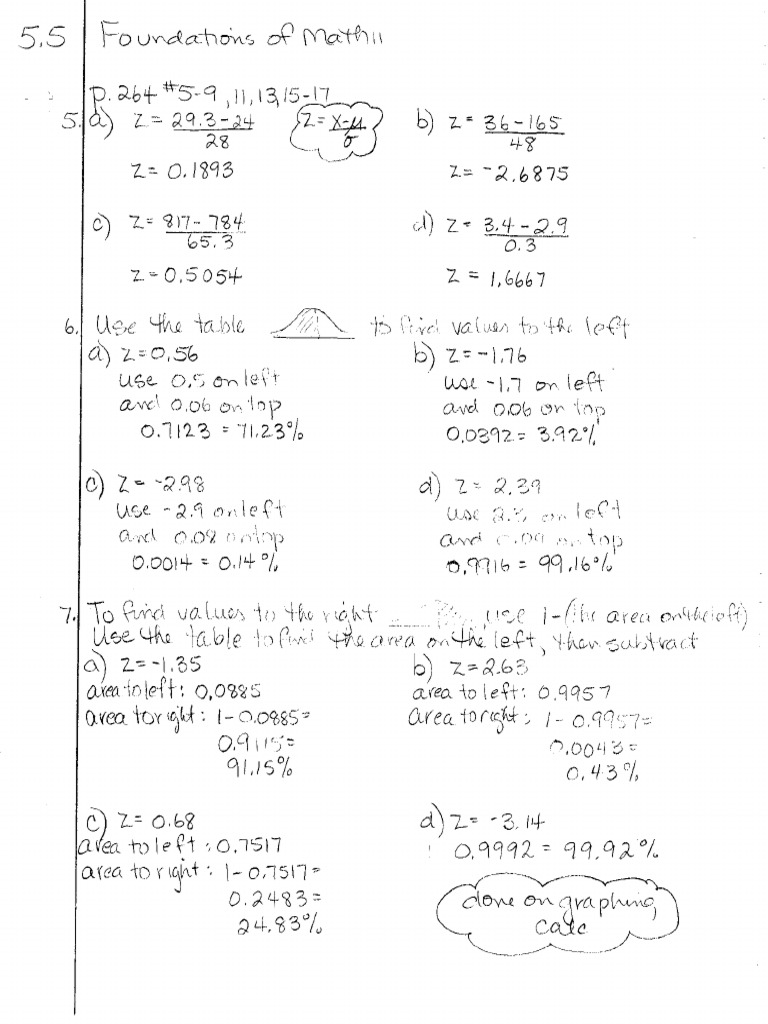 5.5 Foundations of Math 11
p. 264 #5-9, 11, 13, 15-17
5. a) z = 29.3-24 / 28
z = x-μ / σ
b) z = 36-165 / 48
z = 0.1893
z = -2.6875
c) z = 817-784 / 65.3
d) z = 3.4-2.9 / 0.3
z = 0.5054
z = 1.6667
6. Use the table to find values to the left
a) z=0.56
use 0.5 on left
and 0.06 on top
0.7123 = 71.23%
b) z=-1.76
use -1.7 on left
and 0.06 on top
0.0392 = 3.92%
c) z= -2.98
use -2.9 on left
and 0.08 on top
0.0014 = 0.14%
d) z= 2.39
use on left
and on top
0.9916 = 99.16%
7. To find values to the right, use 1-(the area on the left)
Use the table to find the area on the left, then subtract
a) z=-1.35
area to left: 0.0885
area to right: 1-0.0885=
0.9115=
91.15%
b) z=2.63
area to left: 0.9957
area to right: 1-0.9957=
0.0043=
0.43%
c) z= 0.68
area to left: 0.7517
area to right: 1-0.7517=
0.2483=
24.83%
d) z= -3.14
0.9992 = 99.92%
done on graphing
calc